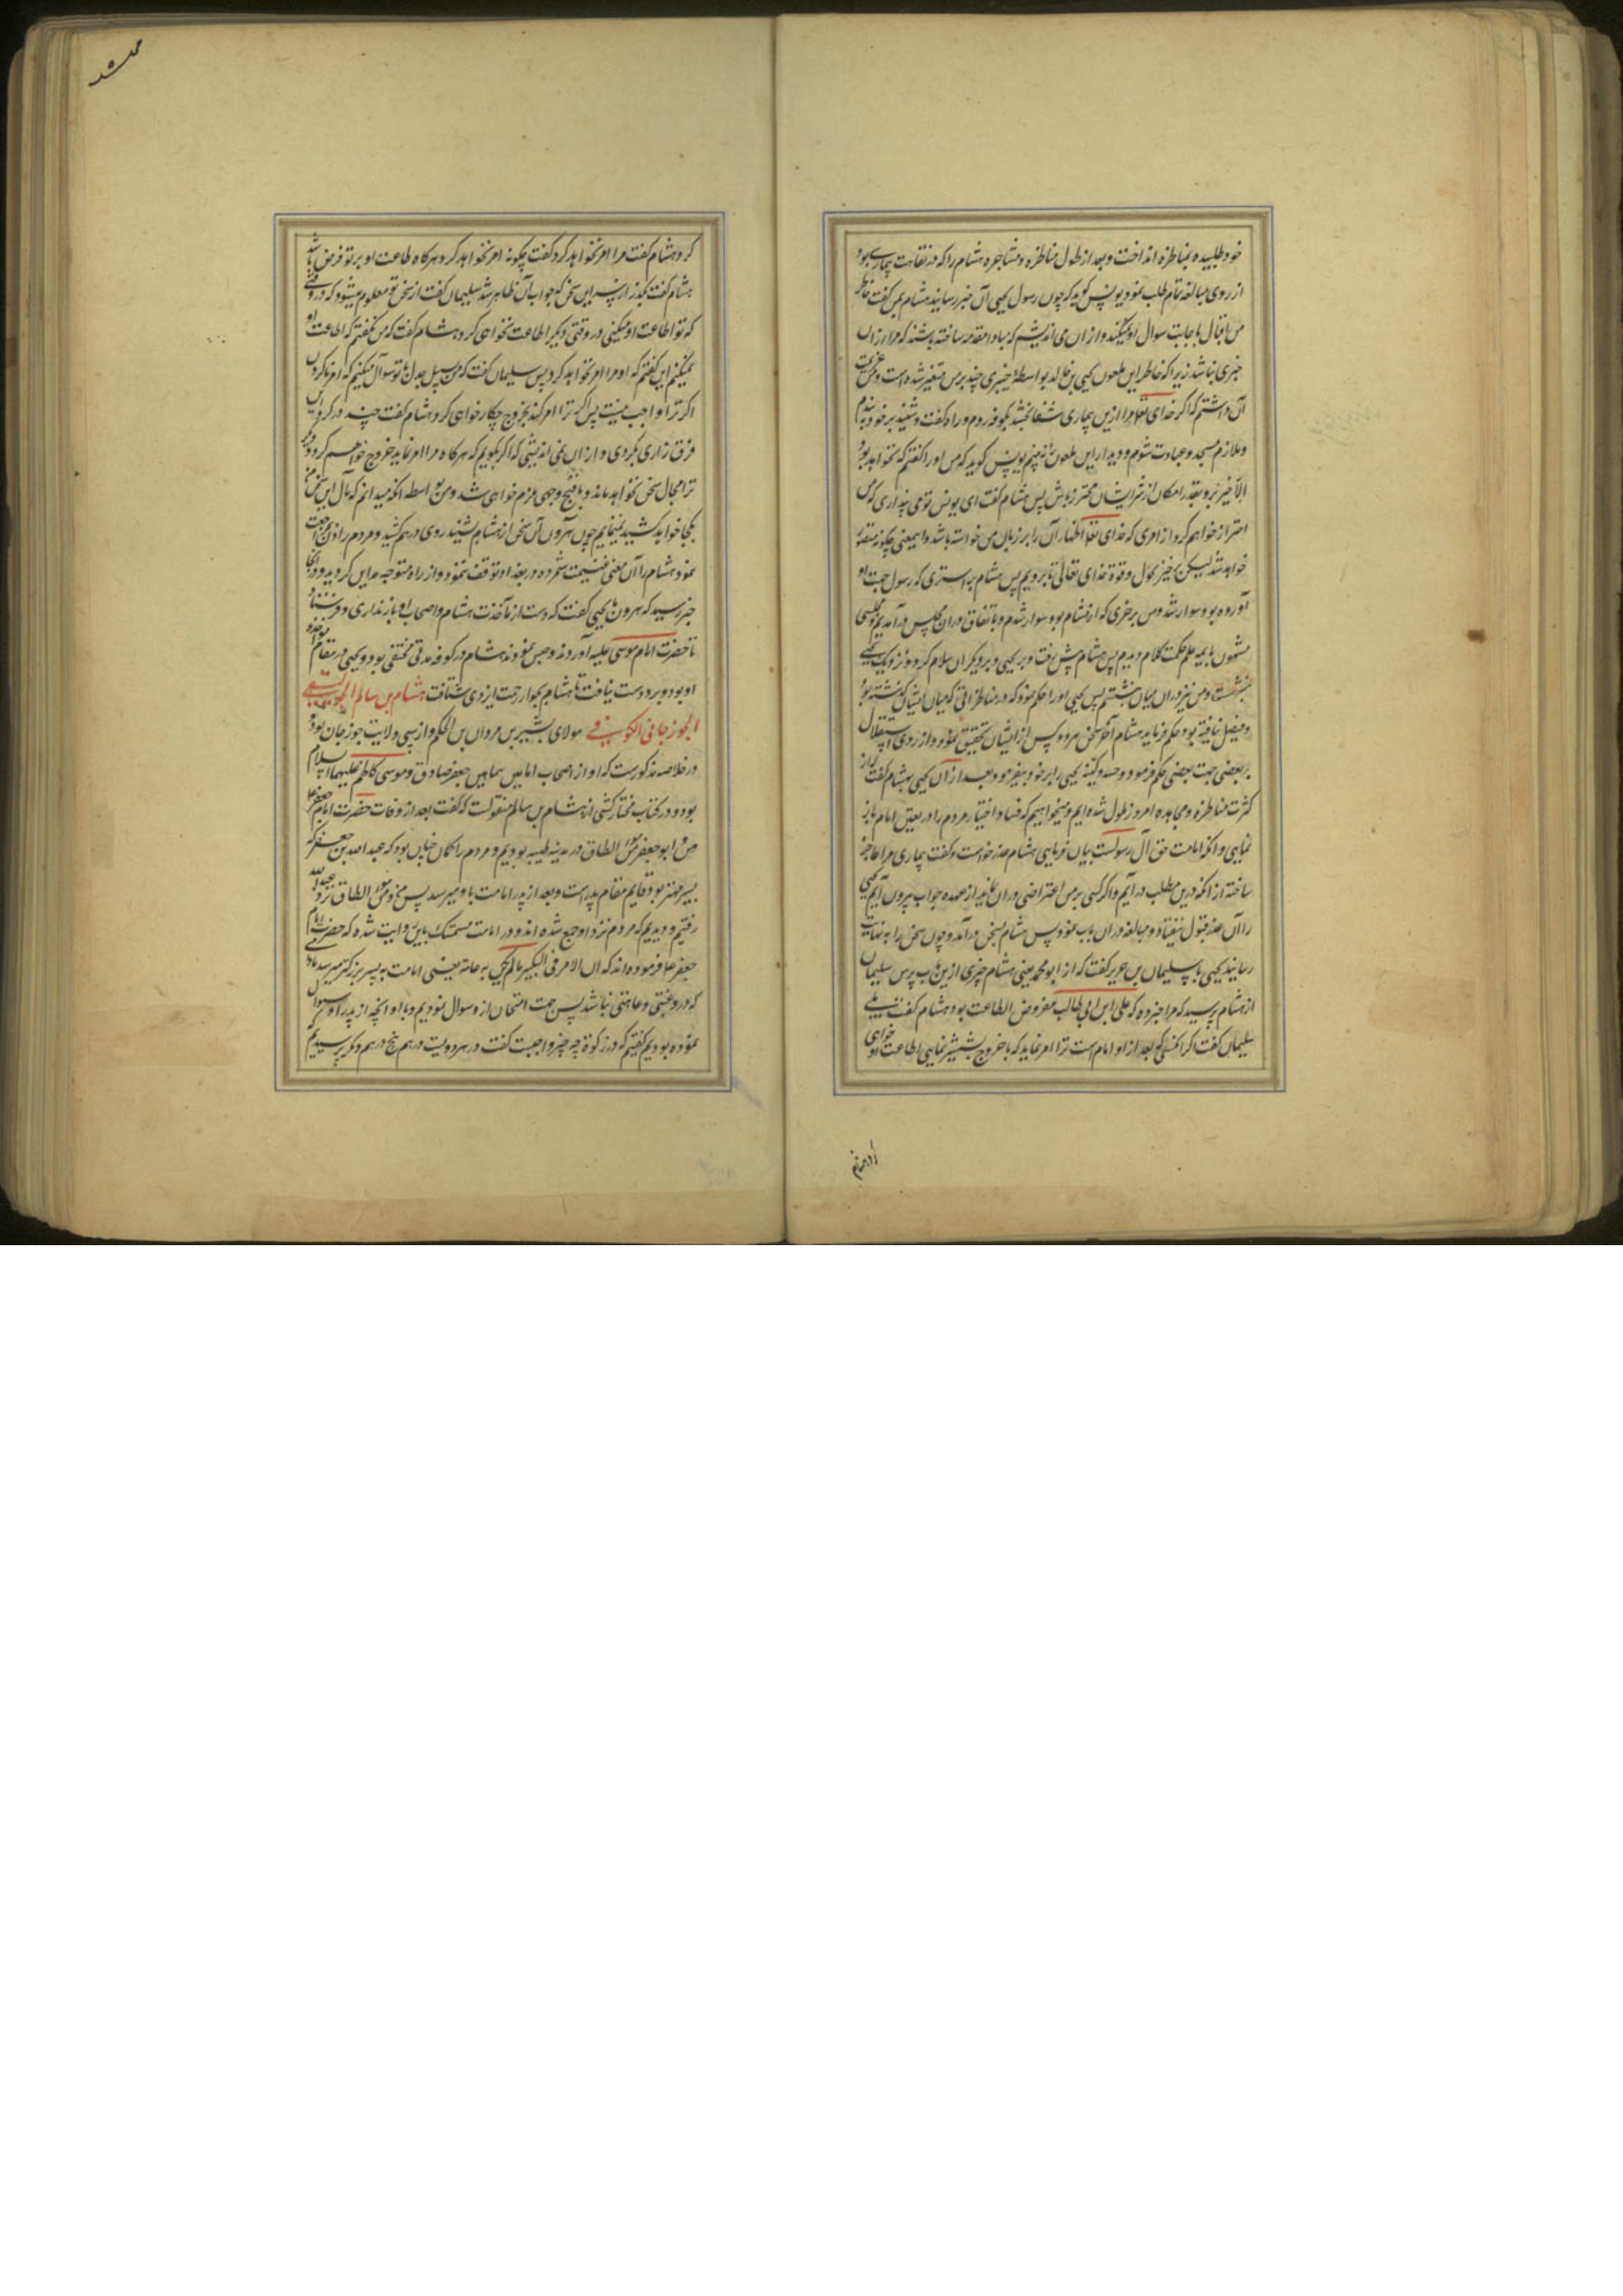 خود طلبیده بمناظره انداخت و بعد از طول مناظره و مشاجره هشام را که در نقاهت بیماری بود
از روی مبالغه تمام طلب نمود یونس کوید که چون رسول یحیی آن خبر رسانید هشام بمن کفت خاطر
من اقبال باجابت سوال او نمیکند و از ان می اندیشم که مبادا مقدمه ساخته باشند که مرا از ان
خبری نباشد زیرا که خاطر این ملعون یحیی بن خالد بواسطهٔ چیزی چند بر من متغیر شده است و من عزیمت
آن داشتم که اکر خدای تعالی مرا ازین بیماری شفا بخشد بکوفه روم و راه کفت و شنید بر خود به بندم
و ملازم مسجد و عبادت شوم و دیدار این ملعون را نه بینم یونس کوید که من او را کفتم که نخواهد بود
الا خیر تو و بقدر امکان از شر ایشان محترز باش پس هشام کفت ای یونس تو می پنداری که من
احتراز خواهم کرد از امری که خدای تعالی اظهار آن را بر زبان من خواسته باشد و این معنی چکونه متصور
خواهد شد لیکن برخیز بحول و قوة خدای تعالی تا برویم پس هشام بر استری که رسول جهت او
آورده بود سوار شد و من بر خری که از هشام بود سوار شدم و باتفاق دران مجلس در آمدیم و مجلسی
مشحون بایمه علم حکمت و کلام دیدم پس هشام پیش رفت و بر یحیی و بر دیکران سلام کرد و نزدیک یحیی
بنشست و من نیز دران میان بنشستم پس یحیی او را حکم نمود که در مناظراتی که میان ایشان کذشته بود
و فیصل نیافته بود حکم فرماید هشام آخر سخن هر دو کس از ایشان تحقیق نمود و از روی استقلال
بر بعضی جهت بعضی حکم فرمود و حسد و کینه یحیی را بر خود بیفزود و بعد از ان یحیی بهشام کفت که از
کثرت مناظره و مجاهده امروز ملول شده ایم و میخواهیم که فساد اختیار مردم را در تعیین امام باز
نمایی و آنکه امامت حق آل رسولست بیان فرمایی هشام عذر خواست و کفت بیماری مرا عاجز
ساخته از آنکه درین مطلب در آیم و اکر کسی بر من اعتراضی دران نماید از عهده جواب بیرون آیم یحیی
را آن عذر قبول نیفتاد و مبالغه دران باب نمود پس هشام بسخن درآمد و چون سخن را به نهایت
رسانید یحیی با سلیمان بن حریر کفت که از ابو محمد یعنی هشام چیزی ازین باب پرس سلیمان
از هشام پرسید که مرا خبر ده که علی ابن ابی طالب مفروض الطاعت بود هشام کفت بلی
سلیمان کفت اکر آنکسی که بعد از او امام است ترا امر نماید که با خروج بشمشیر نمایی اطاعت او خواهی
کرد هشام کفت مرا امر نخواهد کرد کفت چکونه امر نخواهد کرد و هرکاه طاعت او بر تو فرض باشد
هشام کفت بکذر از سر این سخن که جواب آن ظاهر شد سلیمان کفت از سخن تو معلوم میشود که در وقتی
که تو اطاعت او میکنی در وقتی دیکر اطاعت نخواهی کرد هشام کفت که من نکفتم که اطاعت او
نمیکنم این کفتم که او مرا امر نخواهد کرد پس سلیمان کفت که من بر سبیل جدل با تو سوال میکنم که امر ناکردن
اکر ترا واجب نیست پس اکر ترا امر کند بخروج چکار خواهی کرد هشام کفت چند در کرد این
فرق زاری بکردی و از ان نمی اندیشی که اکر بکویم که هرکاه مرا امر نماید خروج خواهم کرد و دیکر
ترا مجال سخن نخواهد ماند و باقبح وجهی ملزم خواهی شد و من بواسطه آنکه میدانم که مآل این سخن من
بکجا خواهد کشید نمیکویم چون هرون آن سخن از هشام شنید روی درهم کشید و مردم را اذن مراجعت
نمود هشام را آن معنی غنیمت شمرده در بغداد توقف ننمود و از راه متوجه مداین کردید و در آنجا
خبر رسید که هرون با یحیی کفت که دست از مآخذت هشام و اصحاب او باز نداری و فرستاد
تا حضرت امام موسی علیه آوردند و حبس نمودند هشام در کوفه مدتی مختفی بود و یحیی در مقام مواخذه
او بود و برو دست نیافت تا هشام بجوار رحمت ایزدی شتافت هشام بن سالم الجوالیقی
الجوزجانی الکوفی مولای بشیر بن مروان بن الحکم و از سبی ولایت جوزجان بود
در خلاصه مذکورست که او از اصحاب امامین همامین جعفر صادق و موسی کاظم علیهما السلام
بود و در کتاب مختار کشی از هشام بن سالم منقولست که کفت بعد از وفات حضرت امام جعفر
من و ابو جعفر مومن الطاق در مدینه طیبه بودیم و مردم را کمان چنان بود که عبد الله بن جعفر که
پسر مهتر بود قایم مقام پدرست و بعد از پدر امامت باو میرسد پس من و مومن الطاق نزد عبد الله
رفتیم و دیدیم که مردم نزد او جمع شده اند و در امامت متمسک باین روایت شده که حضرت امام
جعفر علیه فرموده اند که ان الامر فی الکبیر مالم یکن به عاهة یعنی امامت به پسر بزرکتر میرسد مادام
که در و عیبی و عاهتی نباشد پس جهت امتحان از و سوال نمودیم و با او آنچه از پدر او سوال
نموده بودیم کفتیم که در زکوة چه چیز واجبست کفت در هر دویست درهم پنج درهم دیکر پرسیدیم که